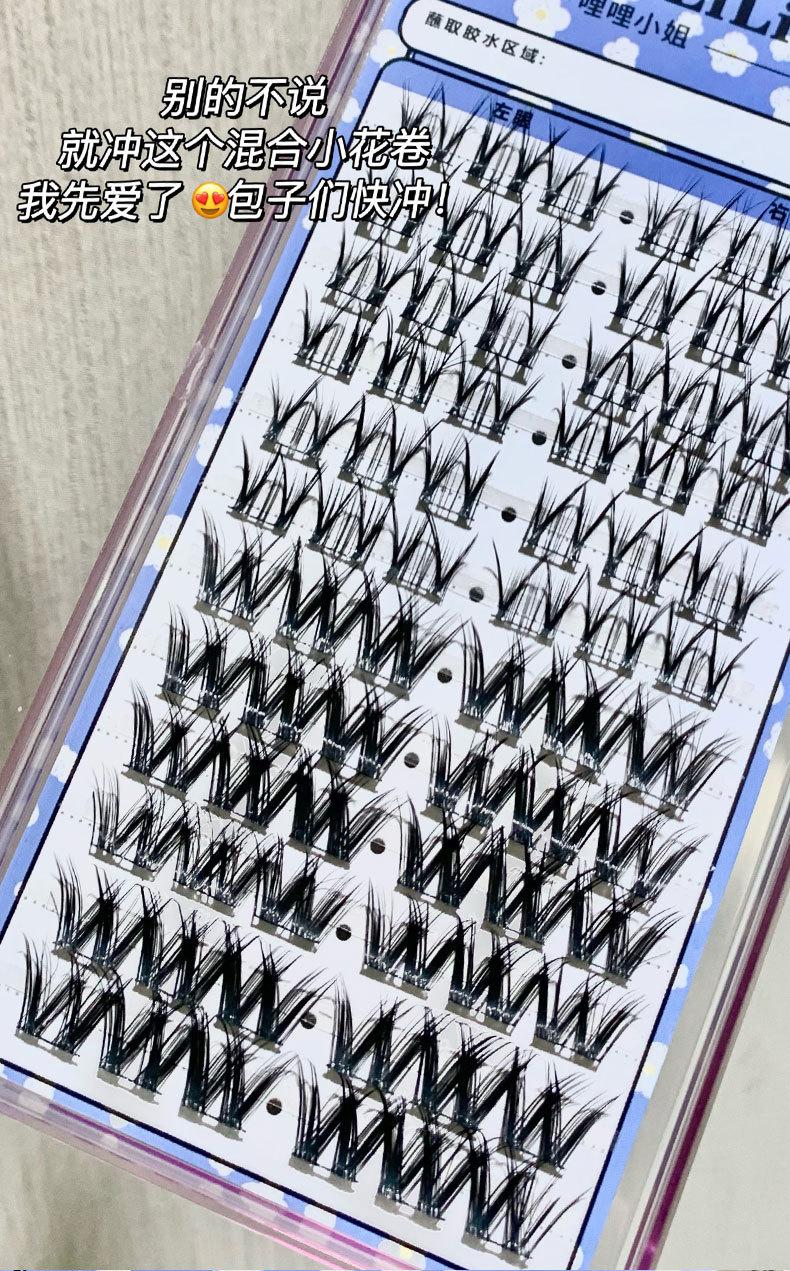 哩哩小姐
蘸取胶水区域：
左眼
别的不说
就冲这个混合小花卷
我先爱了😍包子们快冲！